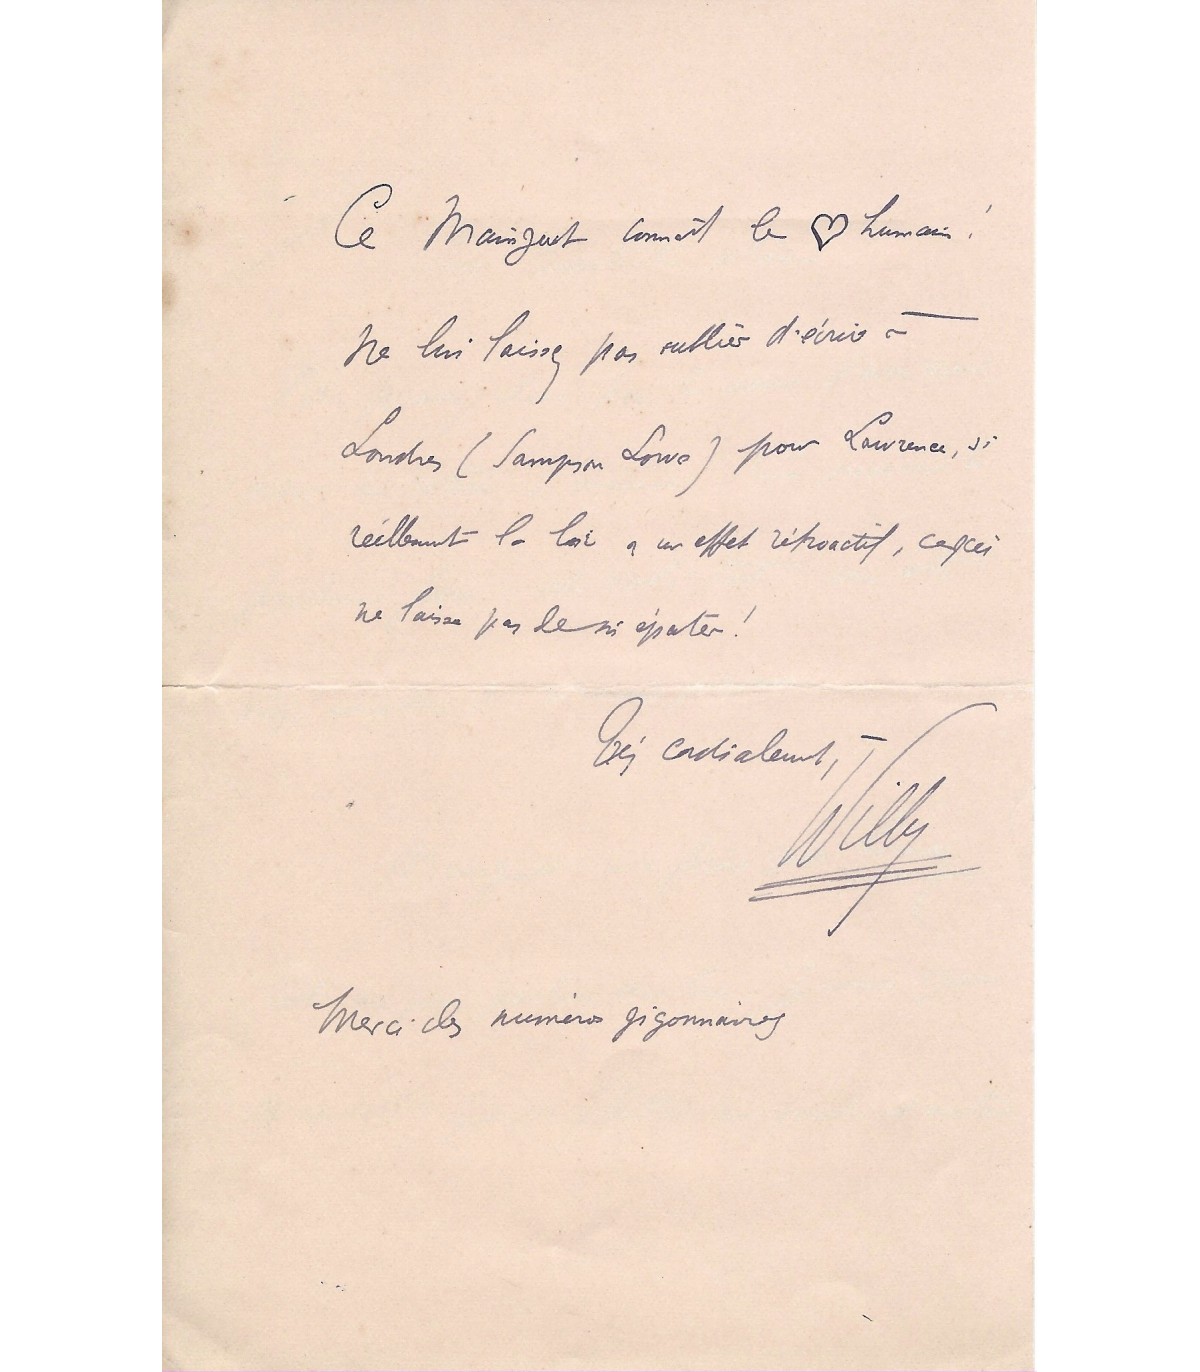 Ce Mainguet connaît le ♡ humain!
Ne lui laissez pas oublier d'écrire à
Londres (Sampson Low) pour Lawrence, si
réellement la loi a un effet rétroactif, ce qui
ne laisse pas de m'épater!
Très cordialement,
Willy
Merci des numéros gigonnaires